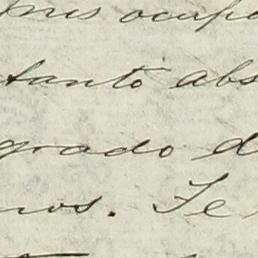 ocupa
tanto abs
grado d
nos. Te